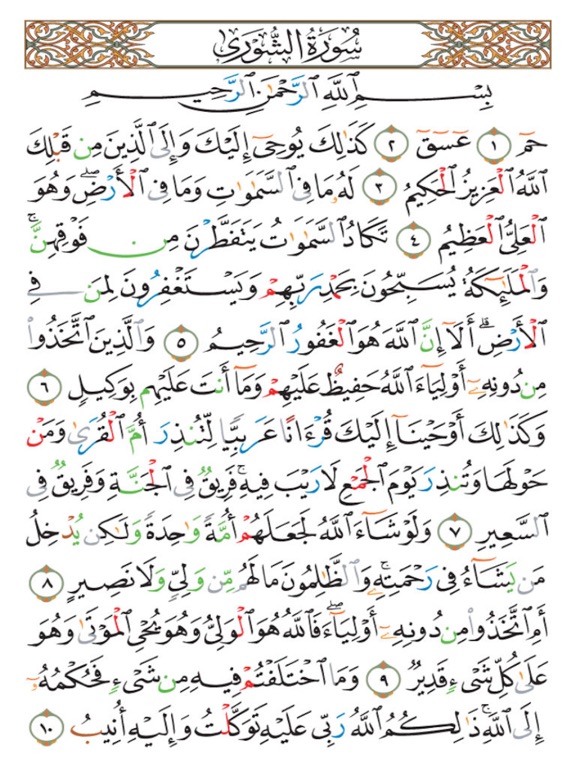 سُورَةُ الشُّورَىٰ
بِسْمِ ٱللَّهِ ٱلرَّحْمَٰنِ ٱلرَّحِيمِ
حمٓ ١ عٓسٓقٓ ٢ كَذَٰلِكَ يُوحِىٓ إِلَيْكَ وَإِلَى ٱلَّذِينَ مِن قَبْلِكَ
ٱللَّهُ ٱلْعَزِيزُ ٱلْحَكِيمُ ٣ لَهُۥ مَا فِى ٱلسَّمَٰوَٰتِ وَمَا فِى ٱلْأَرْضِۖ وَهُوَ
ٱلْعَلِىُّ ٱلْعَظِيمُ ٤ تَكَادُ ٱلسَّمَٰوَٰتُ يَتَفَطَّرْنَ مِن فَوْقِهِنَّۚ
وَٱلْمَلَٰٓئِكَةُ يُسَبِّحُونَ بِحَمْدِ رَبِّهِمْ وَيَسْتَغْفِرُونَ لِمَن فِى
ٱلْأَرْضِۗ أَلَآ إِنَّ ٱللَّهَ هُوَ ٱلْغَفُورُ ٱلرَّحِيمُ ٥ وَٱلَّذِينَ ٱتَّخَذُوا۟
مِن دُونِهِۦٓ أَوْلِيَآءَ ٱللَّهُ حَفِيظٌ عَلَيْهِمْ وَمَآ أَنتَ عَلَيْهِم بِوَكِيلٍ ٦
وَكَذَٰلِكَ أَوْحَيْنَآ إِلَيْكَ قُرْءَانًا عَرَبِيًّا لِّتُنذِرَ أُمَّ ٱلْقُرَىٰ وَمَنْ
حَوْلَهَا وَتُنذِرَ يَوْمَ ٱلْجَمْعِ لَا رَيْبَ فِيهِۚ فَرِيقٌ فِى ٱلْجَنَّةِ وَفَرِيقٌ فِى
ٱلسَّعِيرِ ٧ وَلَوْ شَآءَ ٱللَّهُ لَجَعَلَهُمْ أُمَّةً وَٰحِدَةً وَلَٰكِن يُدْخِلُ
مَن يَشَآءُ فِى رَحْمَتِهِۦۚ وَٱلظَّٰلِمُونَ مَا لَهُم مِّن وَلِىٍّ وَلَا نَصِيرٍ ٨
أَمِ ٱتَّخَذُوا۟ مِن دُونِهِۦٓ أَوْلِيَآءَۖ فَٱللَّهُ هُوَ ٱلْوَلِىُّ وَهُوَ يُحْىِ ٱلْمَوْتَىٰ وَهُوَ
عَلَىٰ كُلِّ شَىْءٍ قَدِيرٌ ٩ وَمَا ٱخْتَلَفْتُمْ فِيهِ مِن شَىْءٍ فَحُكْمُهُۥٓ
إِلَى ٱللَّهِۚ ذَٰلِكُمُ ٱللَّهُ رَبِّى عَلَيْهِ تَوَكَّلْتُ وَإِلَيْهِ أُنِيبُ ١٠